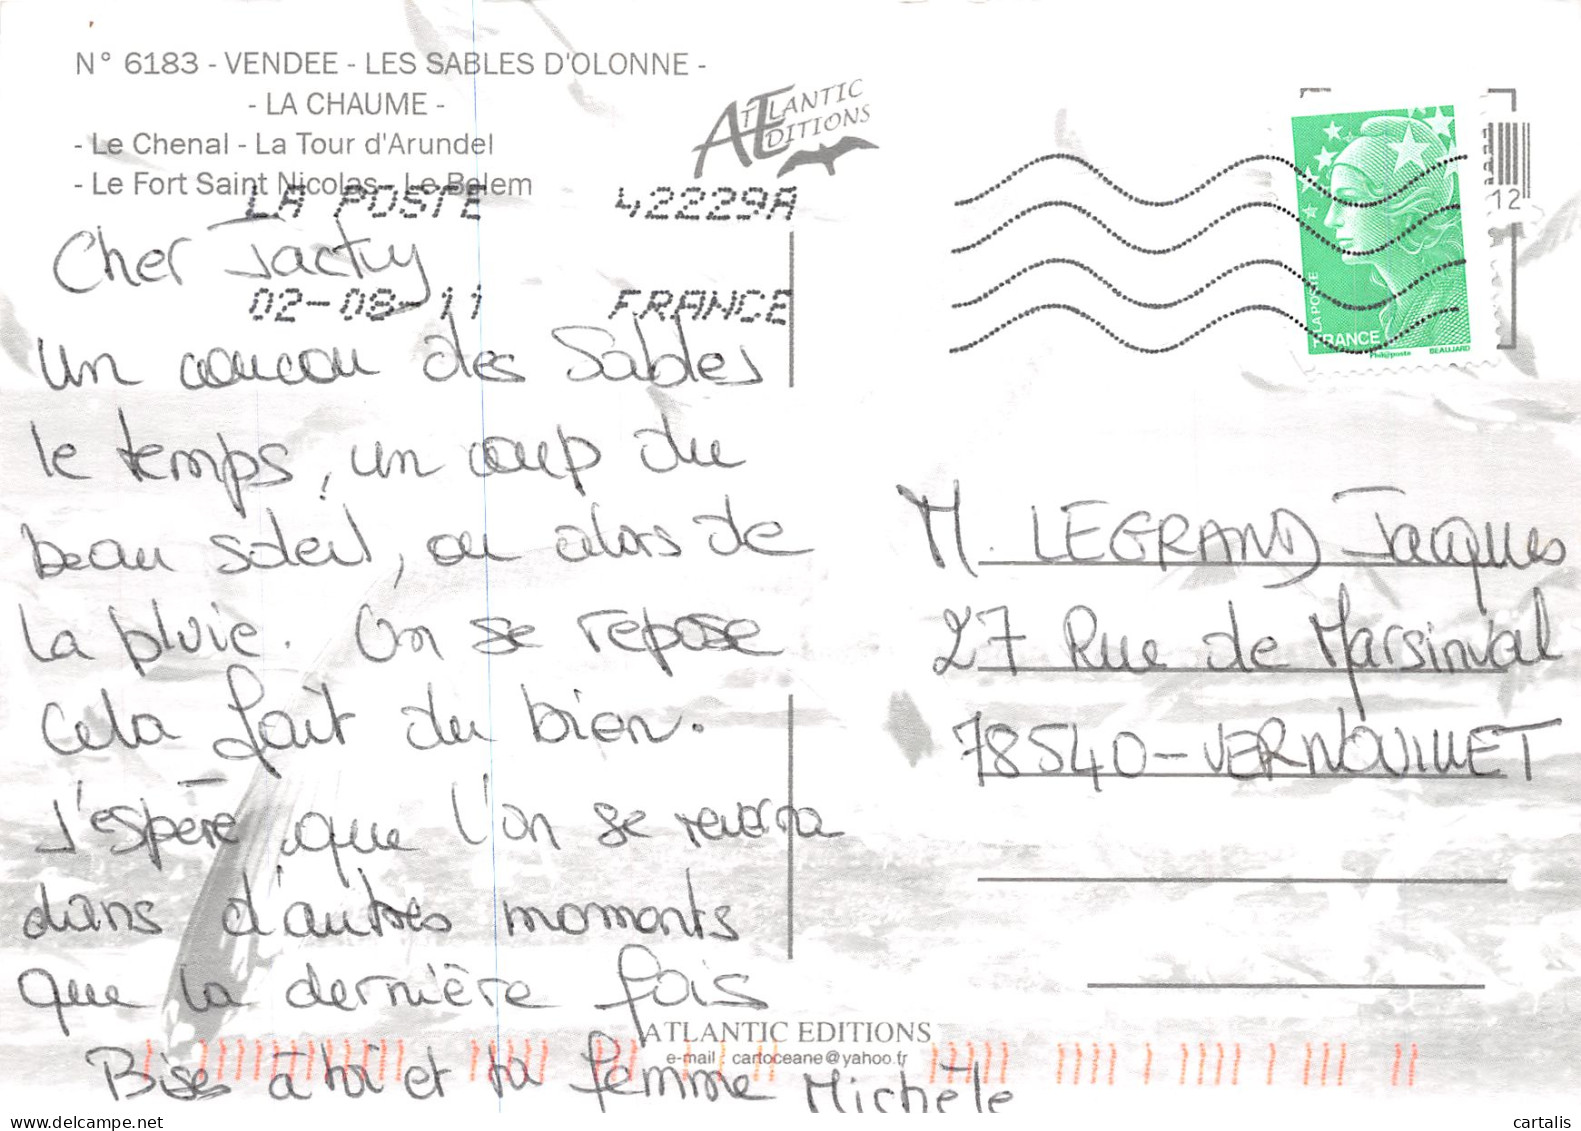 N° 6183 - VENDEE - LES SABLES D'OLONNE -
- LA CHAUME -
- Le Chenal - La Tour d'Arundel
- Le Fort Saint Nicolas - Le Belem
ATLANTIC EDITIONS
LA POSTE 42229A
02-08-11 FRANCE
12
LA POSTE
FRANCE
Phil@poste
BEAUJARD
Cher Jacky
Un coucou des Sables
le temps, un coup du
beau soleil, ou alors de
la pluie. On se repose
cela fait du bien.
J'espère que l'on se reverra
dans d'autres moments
que la dernière fois
Bises à toi et ta femme Michèle
M. LEGRAND Jacques
27 Rue de Marsinval
78540 - VERNOUILLET
ATLANTIC EDITIONS
e-mail cartoceane@yahoo.fr
cartalis